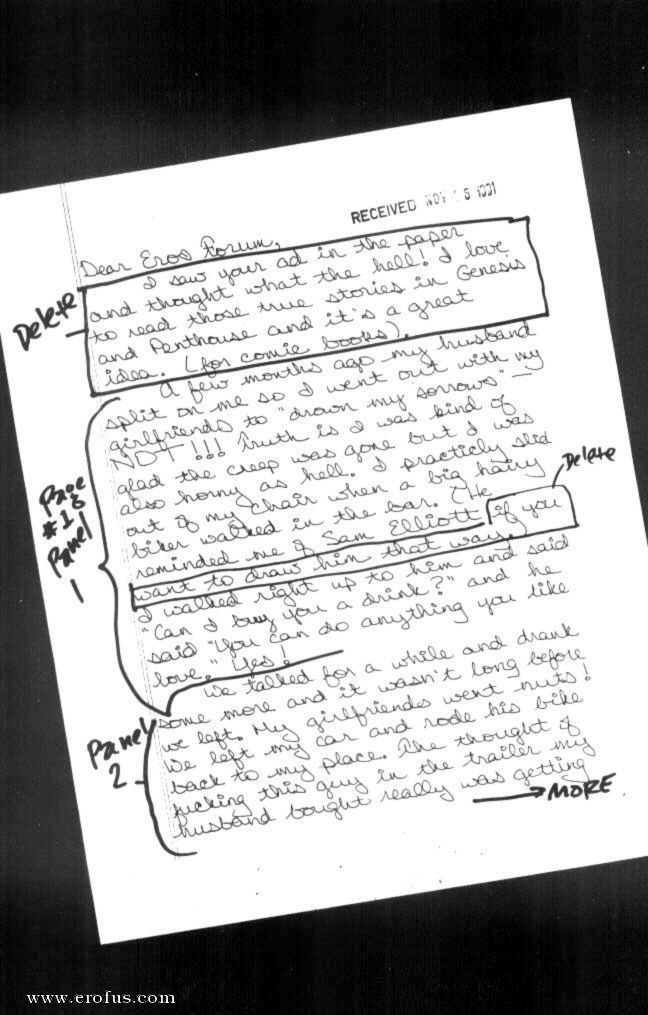 RECEIVED NOV 15 1991
Dear Eros Forum,
I saw your ad in the paper
and thought what the hell! I love
to read those true stories in Genesis
and Penthouse and it's a great
idea. (for comic books).
Delete
A few months ago my husband
split on me so I went out with my
girlfriends to "drown my sorrows" —
NOT!!! Truth is I was kind of
glad the creep was gone but I was
also horny as hell. I practicly slid
out of my chair when a big hairy
biker walked in the bar. (He
reminded me of Sam Elliott if you
want to draw him that way.
Delete
I walked right up to him and said
"Can I buy you a drink?" and he
said "You can do anything you like
love." Yes!
Page
#18
Panel
1
We talked for a while and drank
some more and it wasn't long before
we left. My girlfriends went nuts!
We left my car and rode his bike
back to my place. The thought of
fucking this guy in the trailer my
husband bought really was getting
Panel
2
→ MORE
www.erofus.com